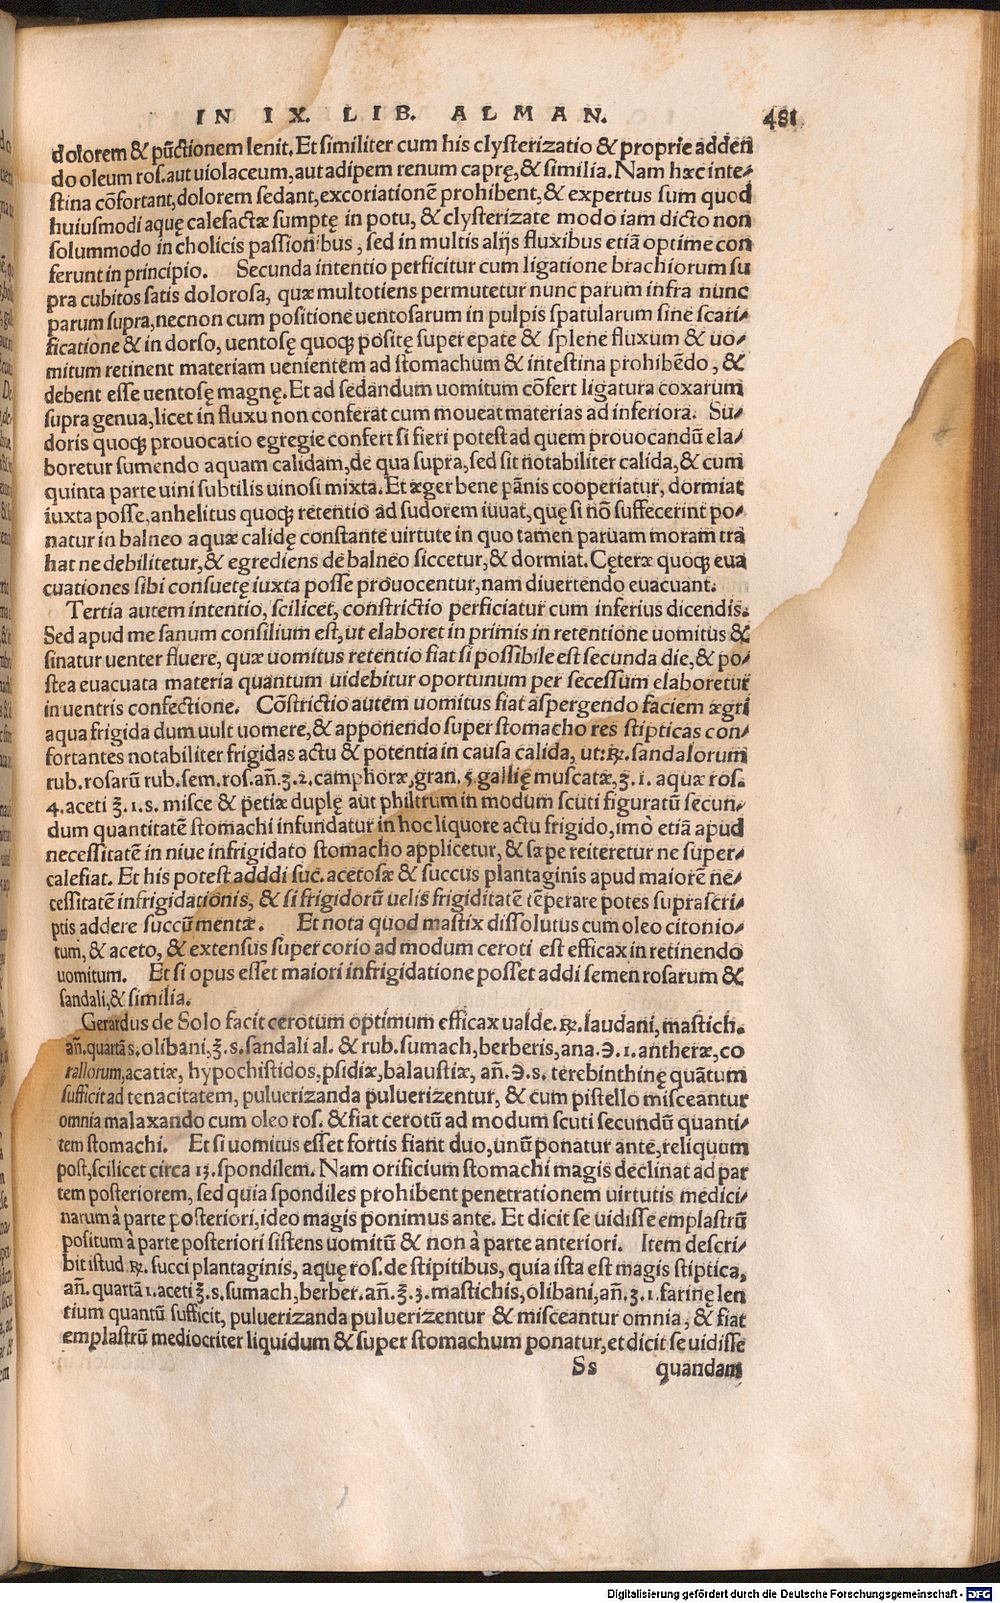 IN IX. LIB. ALMAN. 481
dolorem & pūctionem lenit. Et similiter cum his clysterizatio & proprie adden
do oleum ros. aut uiolaceum, aut adipem renum caprę, & similia. Nam hæc inte-
stina cōfortant, dolorem sedant, excoriationē prohibent, & expertus sum quod
huiusmodi aquę calefactæ sumptę in potu, & clysterizate modo iam dicto non
solummodo in cholicis passionibus, sed in multis alijs fluxibus etiā optime con
ferunt in principio. Secunda intentio perficitur cum ligatione brachiorum su
pra cubitos satis dolorosa, quæ multotiens permutetur nunc parum infra nunc
parum supra, necnon cum positione uentosarum in pulpis spatularum sine scari-
ficatione & in dorso, uentosę quoqꝫ positę super epate & splene fluxum & uo-
mitum retinent materiam uenientem ad stomachum & intestina prohibēdo, &
debent esse uentosę magnę. Et ad sedandum uomitum cōfert ligatura coxarum
supra genua, licet in fluxu non conferat cum moueat materias ad inferiora. Su-
doris quoqꝫ prouocatio egregie confert si fieri potest ad quem prouocandū ela-
boretur sumendo aquam calidam, de qua supra, sed sit notabiliter calida, & cum
quinta parte uini subtilis uinosi mixta. Et æger bene pānis cooperiatur, dormiat
iuxta posse, anhelitus quoqꝫ retentio ad sudorem iuuat, quę si nō suffecerint po-
natur in balneo aquæ calidę constante uirtute in quo tamen paruam moram tra
hat ne debilitetur, & egrediens de balneo siccetur, & dormiat. Cęteræ quoqꝫ eua
cuationes sibi consuetę iuxta posse prouocentur, nam diuertendo euacuant.
Tertia autem intentio, scilicet, constrictio perficiatur cum inferius dicendis.
Sed apud me sanum consilium est, ut elaboret in primis in retentione uomitus &
sinatur uenter fluere, quæ uomitus retentio fiat si possibile est secunda die, & po-
stea euacuata materia quantum uidebitur oportunum per secessum elaboretur
in uentris confectione. Cōstrictio autem uomitus fiat aspergendo faciem ægri
aqua frigida dum uult uomere, & apponendo super stomacho res stipticas con-
fortantes notabiliter frigidas actu & potentia in causa calida, ut: ℞. sandalorum
rub. rosarū rub. sem. ros. añ. ʒ. 2. camphoræ, gran. 5. gallię muscatæ, ʒ. 1. aquæ ros.
4. aceti ℥. 1. s. misce & petiæ duplę aut philtrum in modum scuti figuratū secun-
dum quantitatē stomachi infundatur in hoc liquore actu frigido, imò etiā apud
necessitatē in niue infrigidato stomacho applicetur, & sæpe reiteretur ne super-
calefiat. Et his potest adddi suc. acetosæ & succus plantaginis apud maiorē ne-
cessitatē infrigidationis, & si frigidorū uelis frigiditatē tēperare potes suprascri-
ptis addere succū mentæ. Et nota quod mastix dissolutus cum oleo citonio-
rum, & aceto, & extensus super corio ad modum ceroti est efficax in retinendo
uomitum. Et si opus esset maiori infrigidatione posset addi semen rosarum &
sandali, & similia.
Gerardus de Solo facit cerotum optimum efficax ualde. ℞. laudani, mastich.
añ. quartā s. olibani, ℥. s. sandali al. & rub. sumach, berberis, ana. ℈. 1. antheræ, co
rallorum, acatiæ, hypochistidos, psidiæ, balaustiæ, añ. ℈. s. terebinthinę quātum
sufficit ad tenacitatem, puluerizanda puluerizentur, & cum pistello misceantur
omnia malaxando cum oleo ros. & fiat cerotū ad modum scuti secundū quanti-
tem stomachi. Et si uomitus esset fortis fiant duo, unū ponatur ante, reliquum
post, scilicet circa 13. spondilem. Nam orificium stomachi magis declinat ad par
tem posteriorem, sed quia spondiles prohibent penetrationem uirtutis medici-
narum à parte posteriori, ideo magis ponimus ante. Et dicit se uidisse emplastrū
positum à parte posteriori sistens uomitū & non à parte anteriori. Item descri-
bit istud. ℞. succi plantaginis, aquę ros. de stipitibus, quia ista est magis stiptica,
añ. quartā 1. aceti ℥. s, sumach, berber. añ. ʒ. 3. mastichis, olibani, añ. ʒ. 1. farinę len
tium quantū sufficit, puluerizanda puluerizentur & misceantur omnia, & fiat
emplastrū mediocriter liquidum & super stomachum ponatur, et dicit se uidisse
Ss quandam
Digitalisierung gefördert durch die Deutsche Forschungsgemeinschaft - DFG